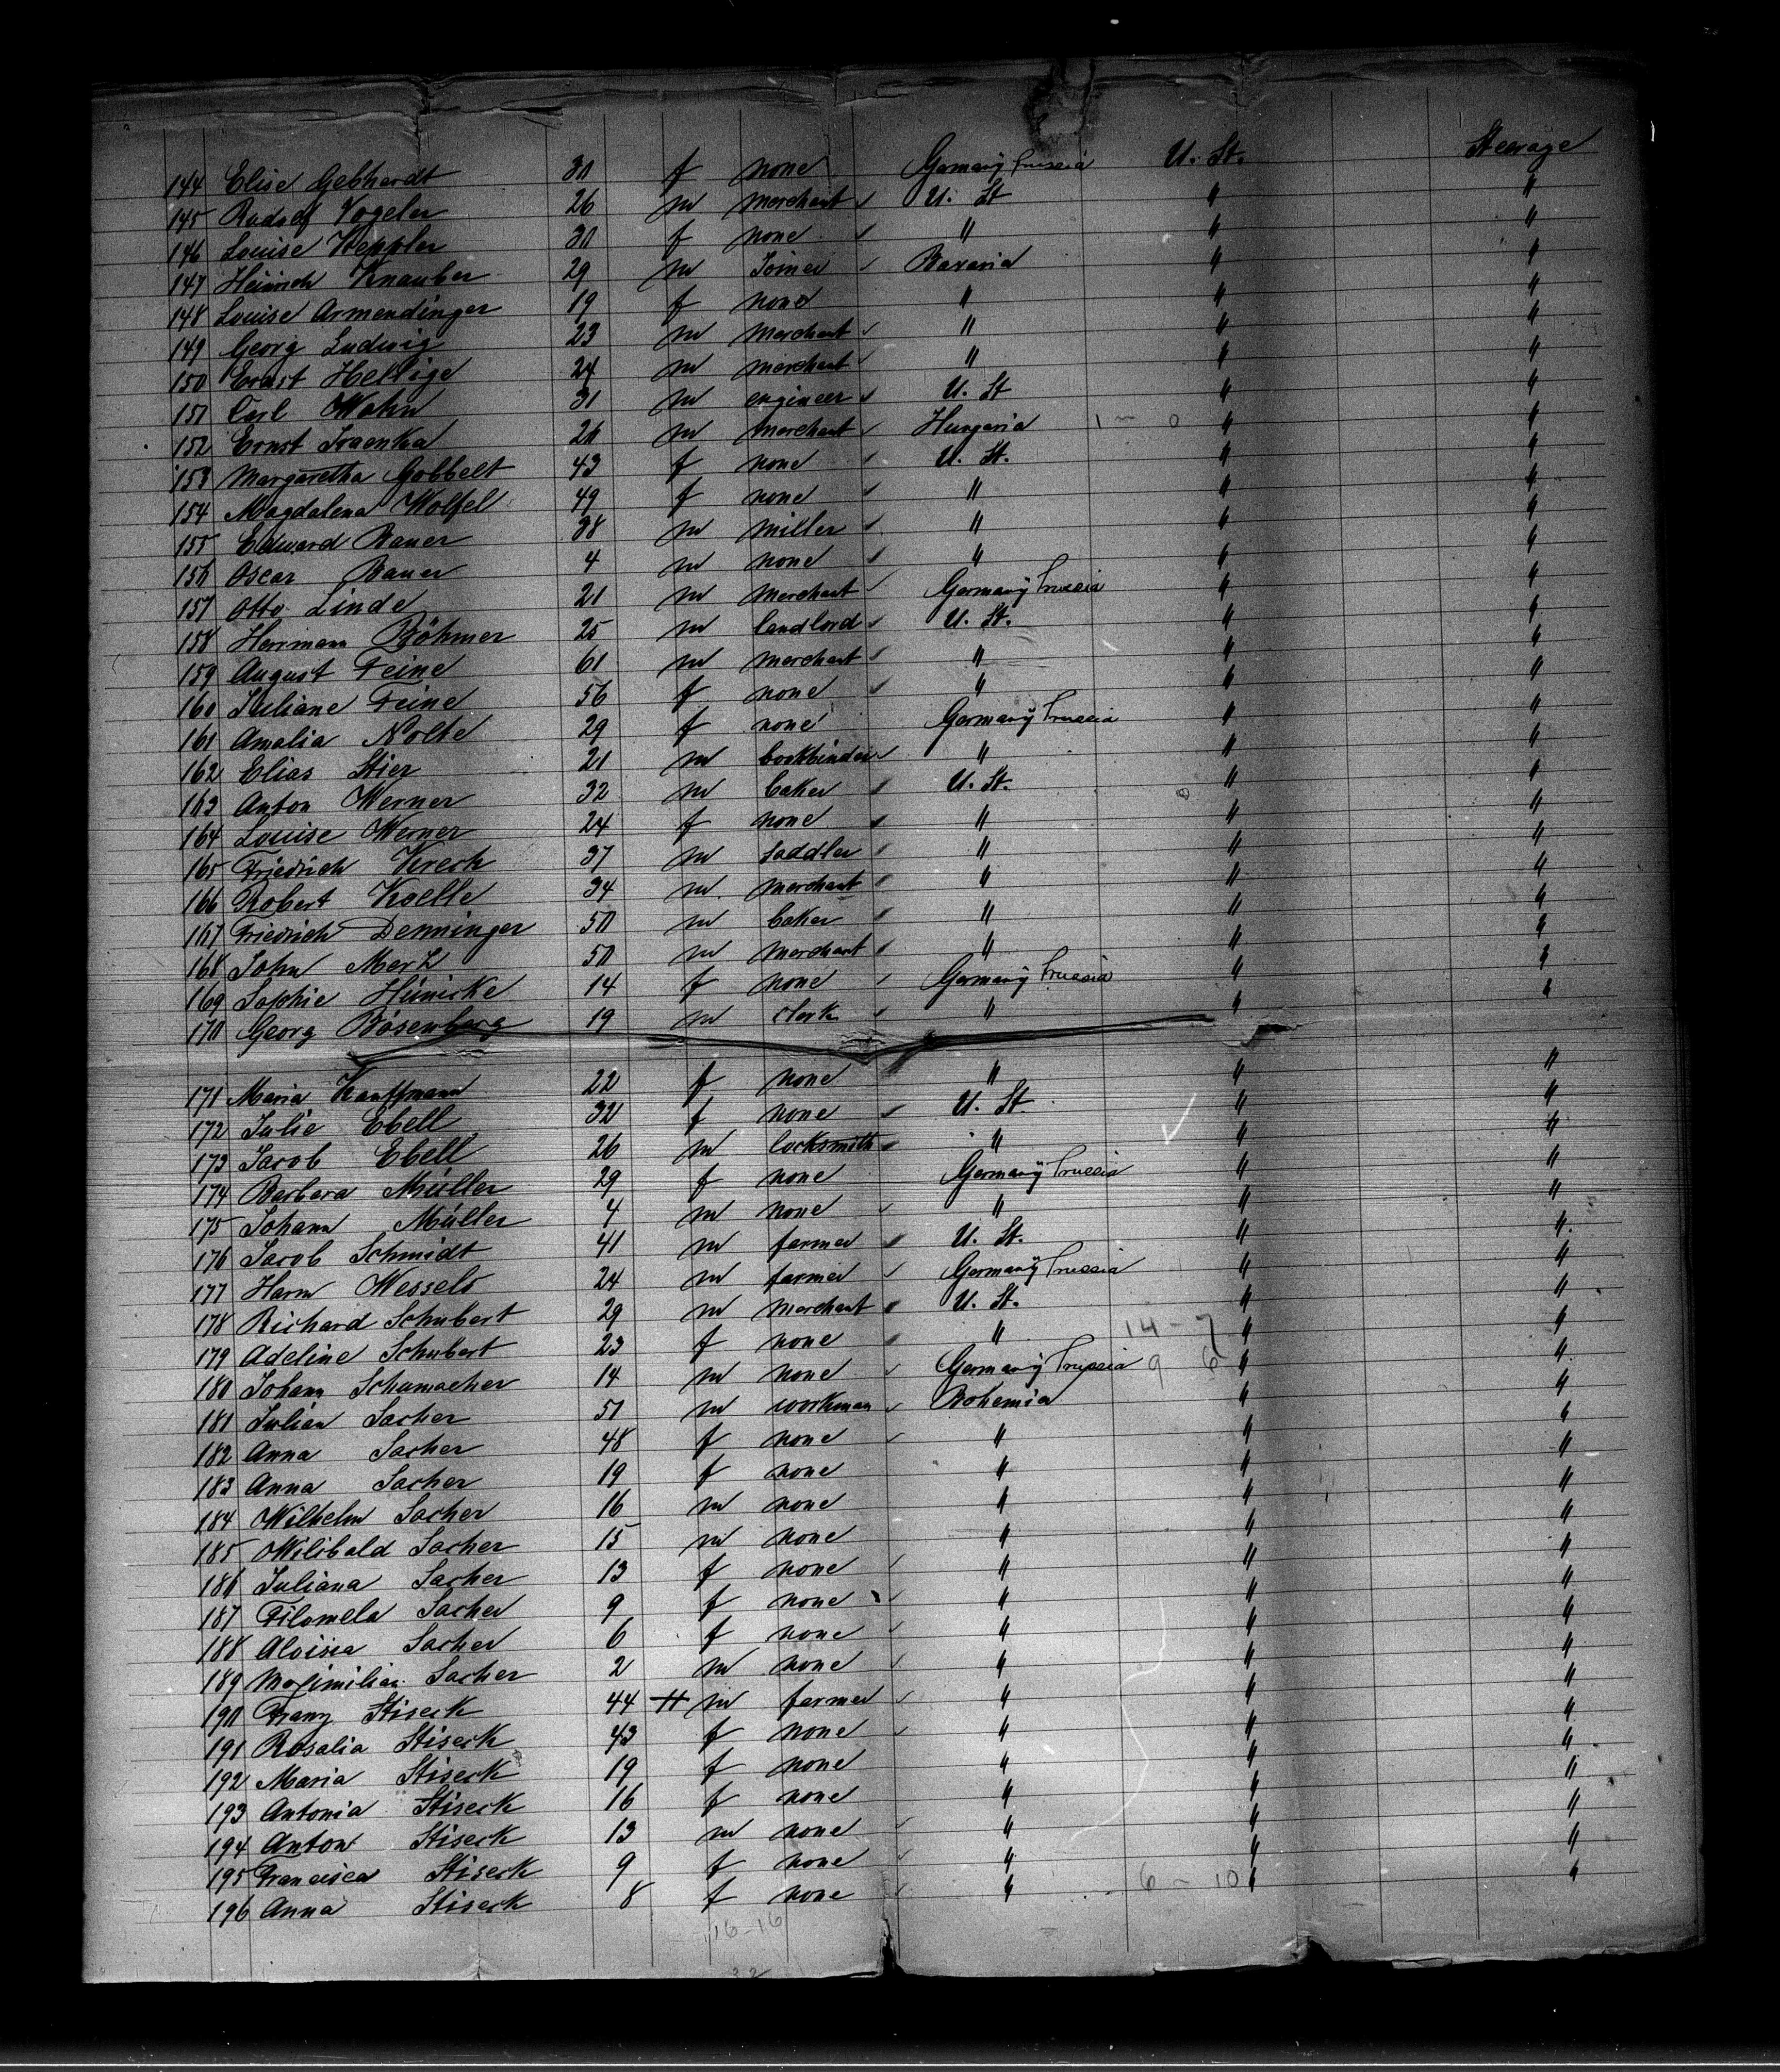 144 Elise Gebhardt 30 f none Germany Prussia U. St. Steerage
145 Rudolf Vogeler 26 m merchant U. St " "
146 Louise Keppler 30 f none " " "
147 Heinrich Knauber 29 m Joiner Bavaria " "
148 Louise Armendinger 19 f none " " "
149 Georg Ludwig 23 m merchant " " "
150 Ernst Hellige 24 m merchant " " "
151 Carl Wahn 31 m engineer U. St " "
152 Ernst 26 m merchant Hungaria 1 - 0 " "
153 Margaretha Gobbelt 43 f none U. St. " "
154 Magdalena Wolfel 49 f none " " "
155 Edward Bauer 38 m miller " " "
156 Oscar Bauer 4 m none " " "
157 Otto Linde 21 m merchant Germany Prussia " "
158 Herrmann Böhmer 25 m landlord U. St. " "
159 August Feine 61 m merchant " " "
160 Juliane Feine 56 f none " " "
161 Amalia Nolte 29 f none Germany Prussia " "
162 Elias Stier 21 m bookbinder " " "
163 Anton Werner 32 m baker U. St. 0 " "
164 Louise Werner 24 f none " " "
165 Friedrich Krech 37 m saddler " " "
166 Robert Koelle 34 m merchant " " "
167 Friedrich Denninger 50 m baker " " "
168 John Merz 50 m merchant " " "
169 Sophie Hünicke 14 f none Germany Prussia " "
170 Georg Bösenberg 19 m clerk " " "
171 Maria Kauffmann 22 f none " " "
172 Julie Ebell 32 f none U. St. " "
173 Jacob Ebell 26 m locksmith " " "
174 Barbara Müller 29 f none Germany Prussia " "
175 Johann Müller 4 m none " " "
176 Jacob Schmidt 41 m farmer U. St. " "
177 Harm Wessels 24 m farmer Germany Prussia " "
178 Richard Schubert 29 m merchant U. St. " "
179 Adeline Schubert 23 f none " 14 - 7 " "
180 Johann Schumacher 14 m none Germany Prussia 9 6 " "
181 Julian Sacher 51 m workman Bohemia " "
182 Anna Sacher 48 f none " " "
183 Anna Sacher 19 f none " " "
184 Wilhelm Sacher 16 m none " " "
185 Wilibald Sacher 15 m none " " "
186 Juliana Sacher 13 f none " " "
187 Filomela Sacher 9 f none " " "
188 Aloisia Sacher 6 f none " " "
189 Maximilian Sacher 2 m none " " "
190 Franz Stiseck 44 m farmer " " "
191 Rosalia Stiseck 43 f none " " "
192 Maria Stiseck 19 f none " " "
193 Antonia Stiseck 16 f none " " "
194 Anton Stiseck 13 m none " " "
195 Francisca Stiseck 9 f none " " "
196 Anna Stiseck 8 f none " 6 - 10 " "
16-16
32